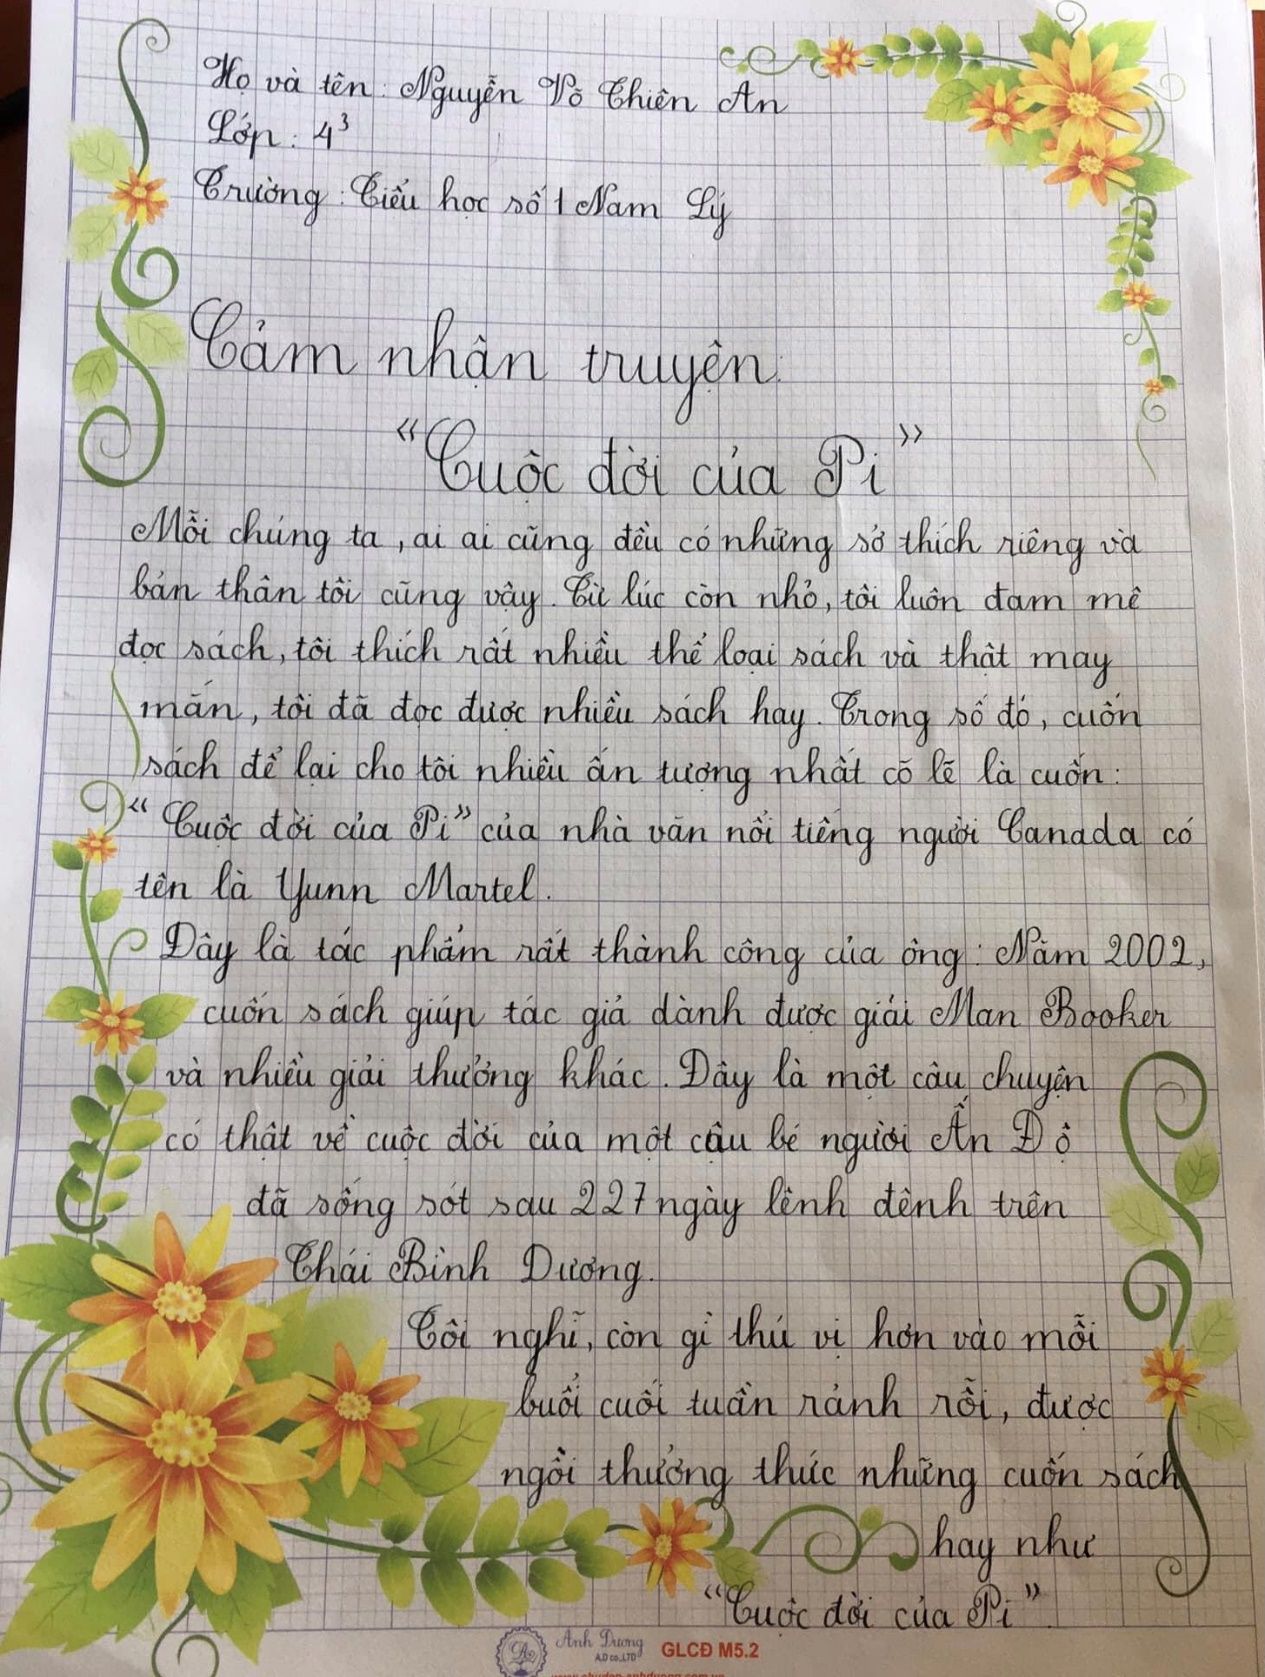 Họ và tên: Nguyễn Võ Thiên An
Lớp: 4³
Trường: Tiểu học số 1 Nam Lý
Cảm nhận truyện:
“Cuộc đời của Pi”
Mỗi chúng ta, ai ai cũng đều có những sở thích riêng và
bản thân tôi cũng vậy. Từ lúc còn nhỏ, tôi luôn đam mê
đọc sách, tôi thích rất nhiều thể loại sách và thật may
mắn, tôi đã đọc được nhiều sách hay. Trong số đó, cuốn
sách để lại cho tôi nhiều ấn tượng nhất có lẽ là cuốn:
“Cuộc đời của Pi” của nhà văn nổi tiếng người Canada có
tên là Yunn Martel.
Đây là tác phẩm rất thành công của ông: Năm 2002,
cuốn sách giúp tác giả dành được giải Man Booker
và nhiều giải thưởng khác. Đây là một câu chuyện
có thật về cuộc đời của một cậu bé người Ấn Độ
đã sống sót sau 227 ngày lênh đênh trên
Thái Bình Dương.
Tôi nghĩ, còn gì thú vị hơn vào mỗi
buổi cuối tuần rảnh rỗi, được
ngồi thưởng thức những cuốn sách
hay như
“Cuộc đời của Pi”.
Anh Dương
A.D co.,LTD
GLCĐ M5.2